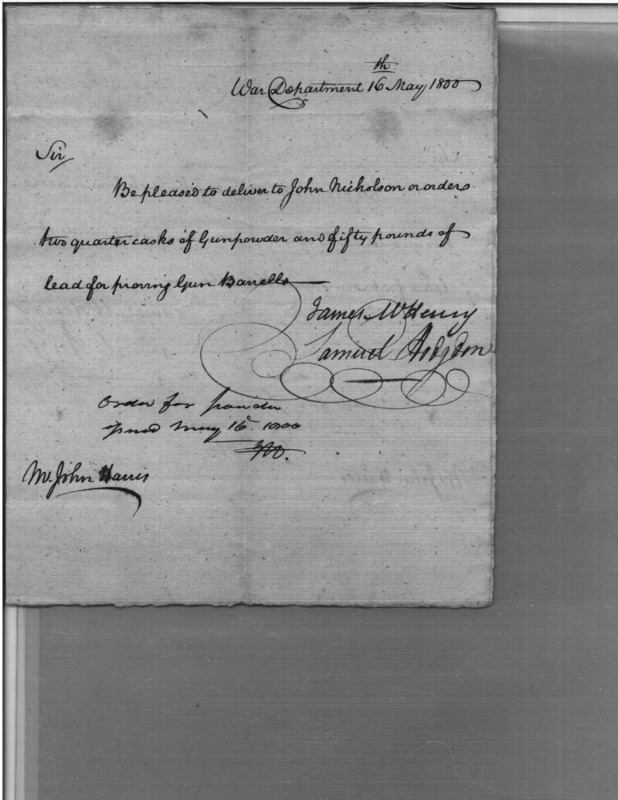 War Department 16th May 1800
Sir
Be pleased to deliver to John Nicholson or order
two quarter casks of Gunpowder and fifty pounds of
lead for proving Gun Barrells
James McHenry
Samuel Hodgdon
Order for powder
May 16. 1800
Mr. John Harris